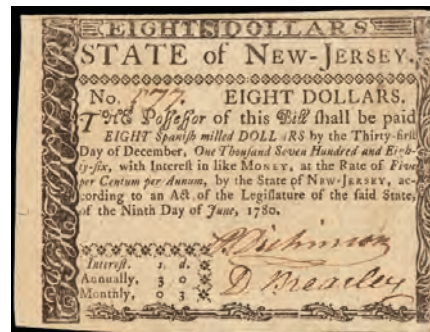 EIGHT DOLLARS
STATE of NEW-JERSEY.
No. 577. EIGHT DOLLARS.
THE Poſſeſſor of this Bill ſhall be paid
EIGHT Spaniſh milled DOLLARS by the Thirty-firſt
Day of December, One Thouſand Seven Hundred and Eigh-
ty-ſix, with Intereſt in like MONEY, at the Rate of Five
per Centum per Annum, by the State of NEW-JERSEY, ac-
cording to an Act of the Legiſlature of the ſaid State,
of the Ninth Day of June, 1780.
Intereſt. s. d.
Annually, 3 0
Monthly, 0 3
D. Brearley